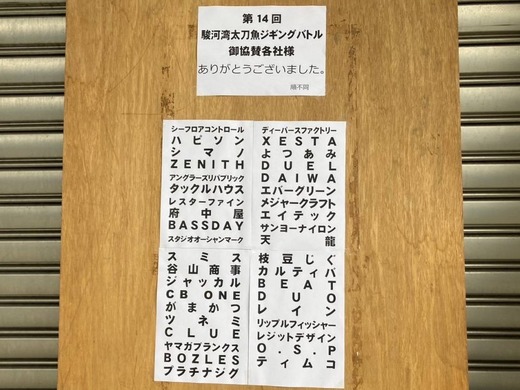 第14回
駿河湾太刀魚ジギングバトル
御協賛各社様
ありがとうございました。
順不同
シーフロアコントロール
ハピソン
シマノ
ZENITH
アングラーズリパブリック
タックルハウス
レスターファイン
府中屋
BASSDAY
スタジオオーシャンマーク
ディーパースファクトリー
XESTA
よつあみ
DUEL
DAIWA
エバーグリーン
メジャークラフト
エイテック
サンヨーナイロン
天龍
スミス
谷山商事
ジャッカル
CB ONE
がまかつ
ツネミ
CLUE
ヤマガブランクス
BOZLES
プラチナジグ
枝豆じぐ
カルティバ
BEAT
DUO
レイン
リップルフィッシャー
レジットデザイン
O.S.P
ティムコ